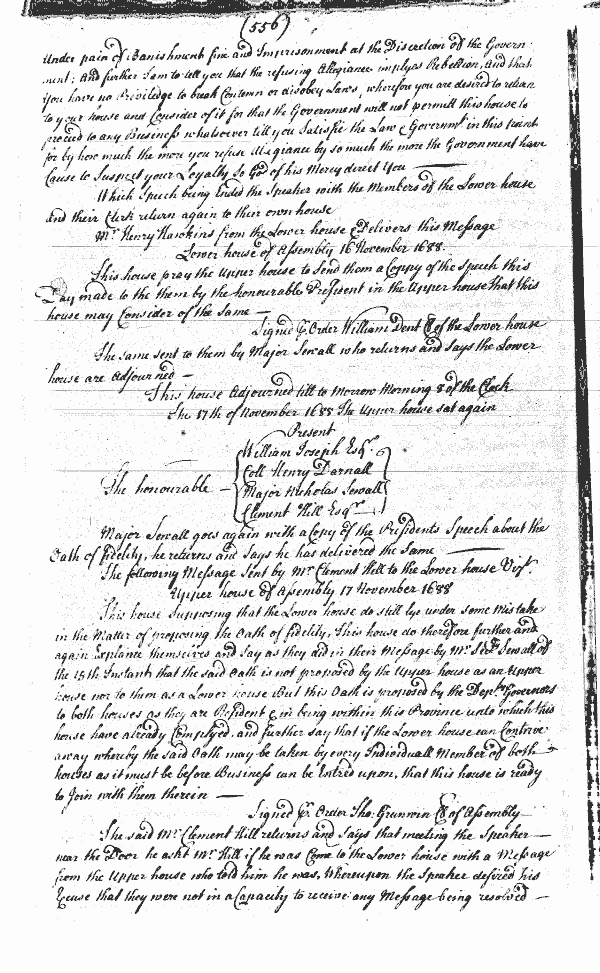 (556)
under pain of Banishment fine and Imprisonment at the Discretion of the Govern
ment; And further I am to tell you that the refusing Allegiance implyes Rebellion, And that
you have no Priviledge to break Contemn or disobey Laws, wherefore you are desired to return
to your house and Consider of it for that the Government will not permitt this house to
proceed to any Business whatsoever till you Satisfie the Law & Governmt in this point
for by how much the more you refuse Allegiance by so much the more the Government have
Cause to Suspect your Loyalty so God of his Mercy direct You
Which Speech being Ended the Speaker with the Members of the Lower house
and their Clerk return again to their own house
Mr Henry Hawkins from the Lower house Delivers this Message
Lower house of Assembly 16 November 1688.
This house pray the Upper house to Send them a Coppy of the Speech this
Day made to the them by the honourable President in the Upper house that this
house may Consider of the Same
Signed P. Order William Dent Cl of the Lower house
The same sent to them by Major Sewall who returns and Says the Lower
house are Adjourned
This house Adjourned till to Morrow Morning 8 of the Clock
The 17th of November 1688 The Upper house sat again
Present
The honourable
William Joseph Esqr.
Coll Henry Darnall
Major Nicholas Sewall
Clement Hill Esqr
Major Sewall goes again with a Copy of the Presidents Speech about the
Oath of fidelity, he returns and Says he has delivered the Same
The following Message Sent by Mr Clement Hill to the Lower house Vizt.
Upper house of Assembly 17 November 1688
This house Supposing that the Lower house do still lye under some Mistake
in the Matter of proposing the Oath of fidelity, This house do therefore further and
again Explane themselves and Say as they did in their Message by Mr Secry Sewall of
the 15th Instant that the said Oath is not proposed by the Upper house as an Upper
house nor to them as a Lower house But this Oath is proposed by the Depty Governors
to both houses as they are Resident & in being within this Province unto which this
house have already Complyed, and further say that if the Lower house can Contrive
a way whereby the said Oath may be taken by every Individuall Member of both
houses as it must be before Business can be Entred upon, that this house is ready
to Join with them therein
Signed P. Order Tho: Grunwin Cl of Assembly
The said Mr Clement Hill returns and Says that meeting the Speaker
near the Door he askt Mr Hill if he was Come to the Lower house with a Message
from the Upper house who told him he was, Whereupon the Speaker desired his
Excuse that they were not in a Capacity to receive any Message being resolved